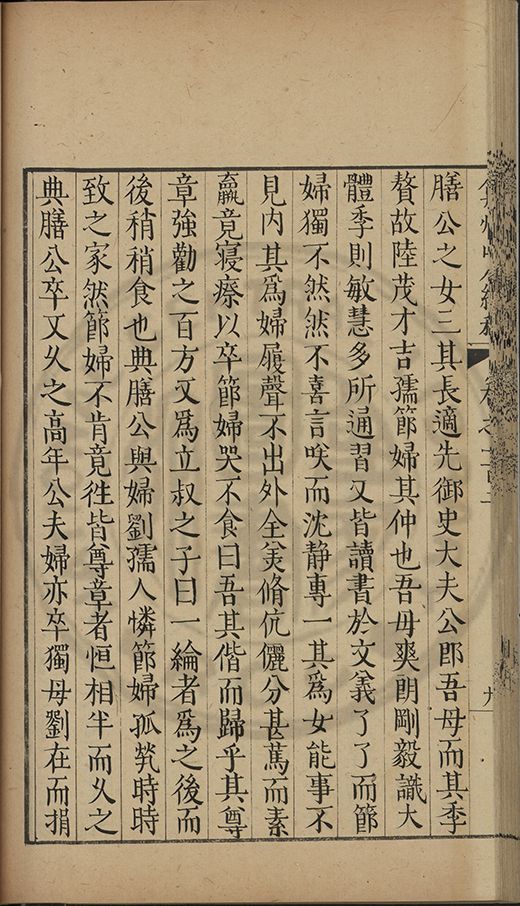 膳公之女三其長適先御史大夫公卽吾母而其季
贅故陸茂才吉孺節婦其仲也吾母爽朗剛毅識大
體季則敏慧多所通習又皆讀書於文義了了而節
婦獨不然然不喜言咲而沈静專一其爲女能事不
見内其爲婦履聲不出外全羙脩伉儷分甚篤而素
羸竟寢瘵以卒節婦哭不食曰吾其偕而歸乎其尊
章強勸之百方又爲立叔之子曰一綸者爲之後而
後稍稍食也典膳公與婦劉孺人憐節婦孤煢時時
致之家然節婦不肯竟徃皆尊章者恒相半而乆之
典膳公卒又乆之高年公夫婦亦卒獨母劉在而捐